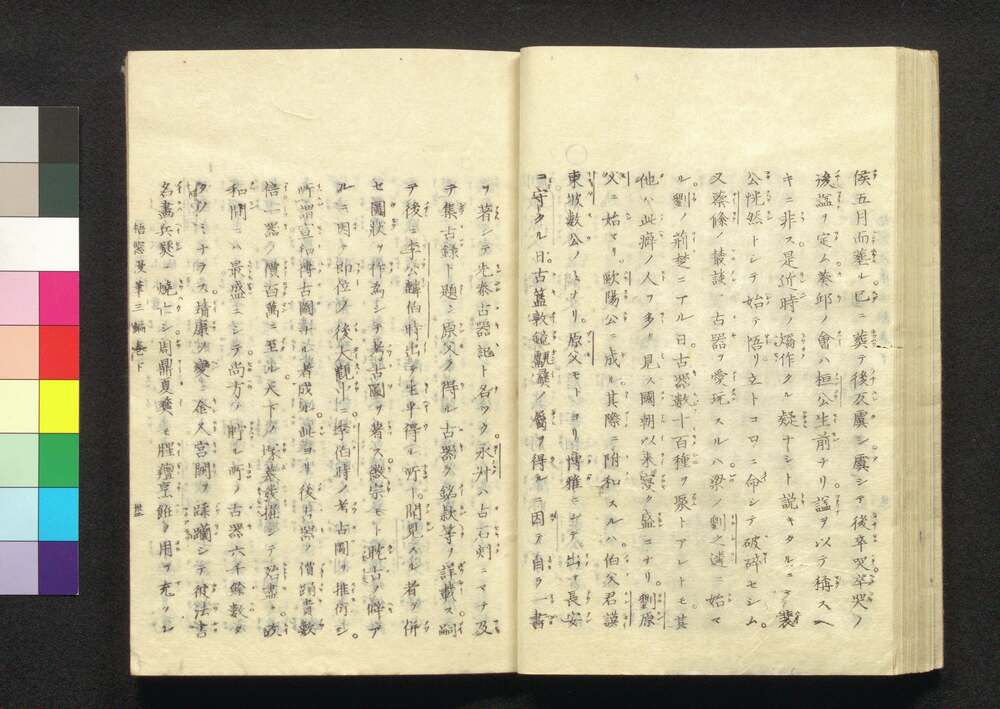 侯五月而葬ル已ニ葬テ後反虞シ虞シテ後卒哭卒哭ノ
後謚ヲ定ム葵邱ノ會ハ桓公生前ナリ謚ヲ以テ稱スヘ
キニ非ス是近時ノ作タル疑ナシト説キタルニ裴
公恍然トシテ始テ悟リ立トコロニ命シテ破碎セシム
又蔡絛ノ叢談ニ古器ヲ愛玩スルハ梁ノ劉之遴ニ始マ
ル劉ノ荊楚ニアル日古器数十百種ヲ聚トアレトモ其
他ハ此癖ノ人ヲ多ク見ス國朝以来浸ク盛ニナリ劉原
父ニ始マリ歐陽公ニ成ル其際ニ附和スルハ伯父君謨
東坡数公ノナリ原父モトヨリ博雅ニシテ出テ長安
ニ守タル日古簋敦鏡甗尊彝ノ屬ヲ得ルニ因テ自ラ一書
ヲ著シテ先秦古器記ト名ツク永叔ハ古石刻ニマテ及
テ集古録ト題シ原父ノ得ル古器ノ銘款等ヲ詳載ス嗣
テ後ニ李公麟伯時出テ生平得ル所ト聞見スル者ヲ併
セ圖狀ヲ作為シテ考古圖ヲ著ス徽宗モト耽古ノ癖ア
ルニ因テ即位ノ後大觀中ニ李伯時ノ考古圖ヲ推術シ
所謂宣和博古圖ナル者成ル此ヨリ後古器ノ價踊貴数
倍一器ノ價百萬ニ至ル天下ノ塚墓發掘シテ殆盡ク政
和間ニハ最盛ニシテ尚方ニ貯ル所ノ古器六千餘数
ノミナラス靖康ノ變ニ金人宮闕ヲ蹂躙シテ彼法書
名畫兵燹ニ燒亡シ周鼎夏彝モ腥羶烹飪ノ用ヲ充ツル
梧窓漫筆三編巻下